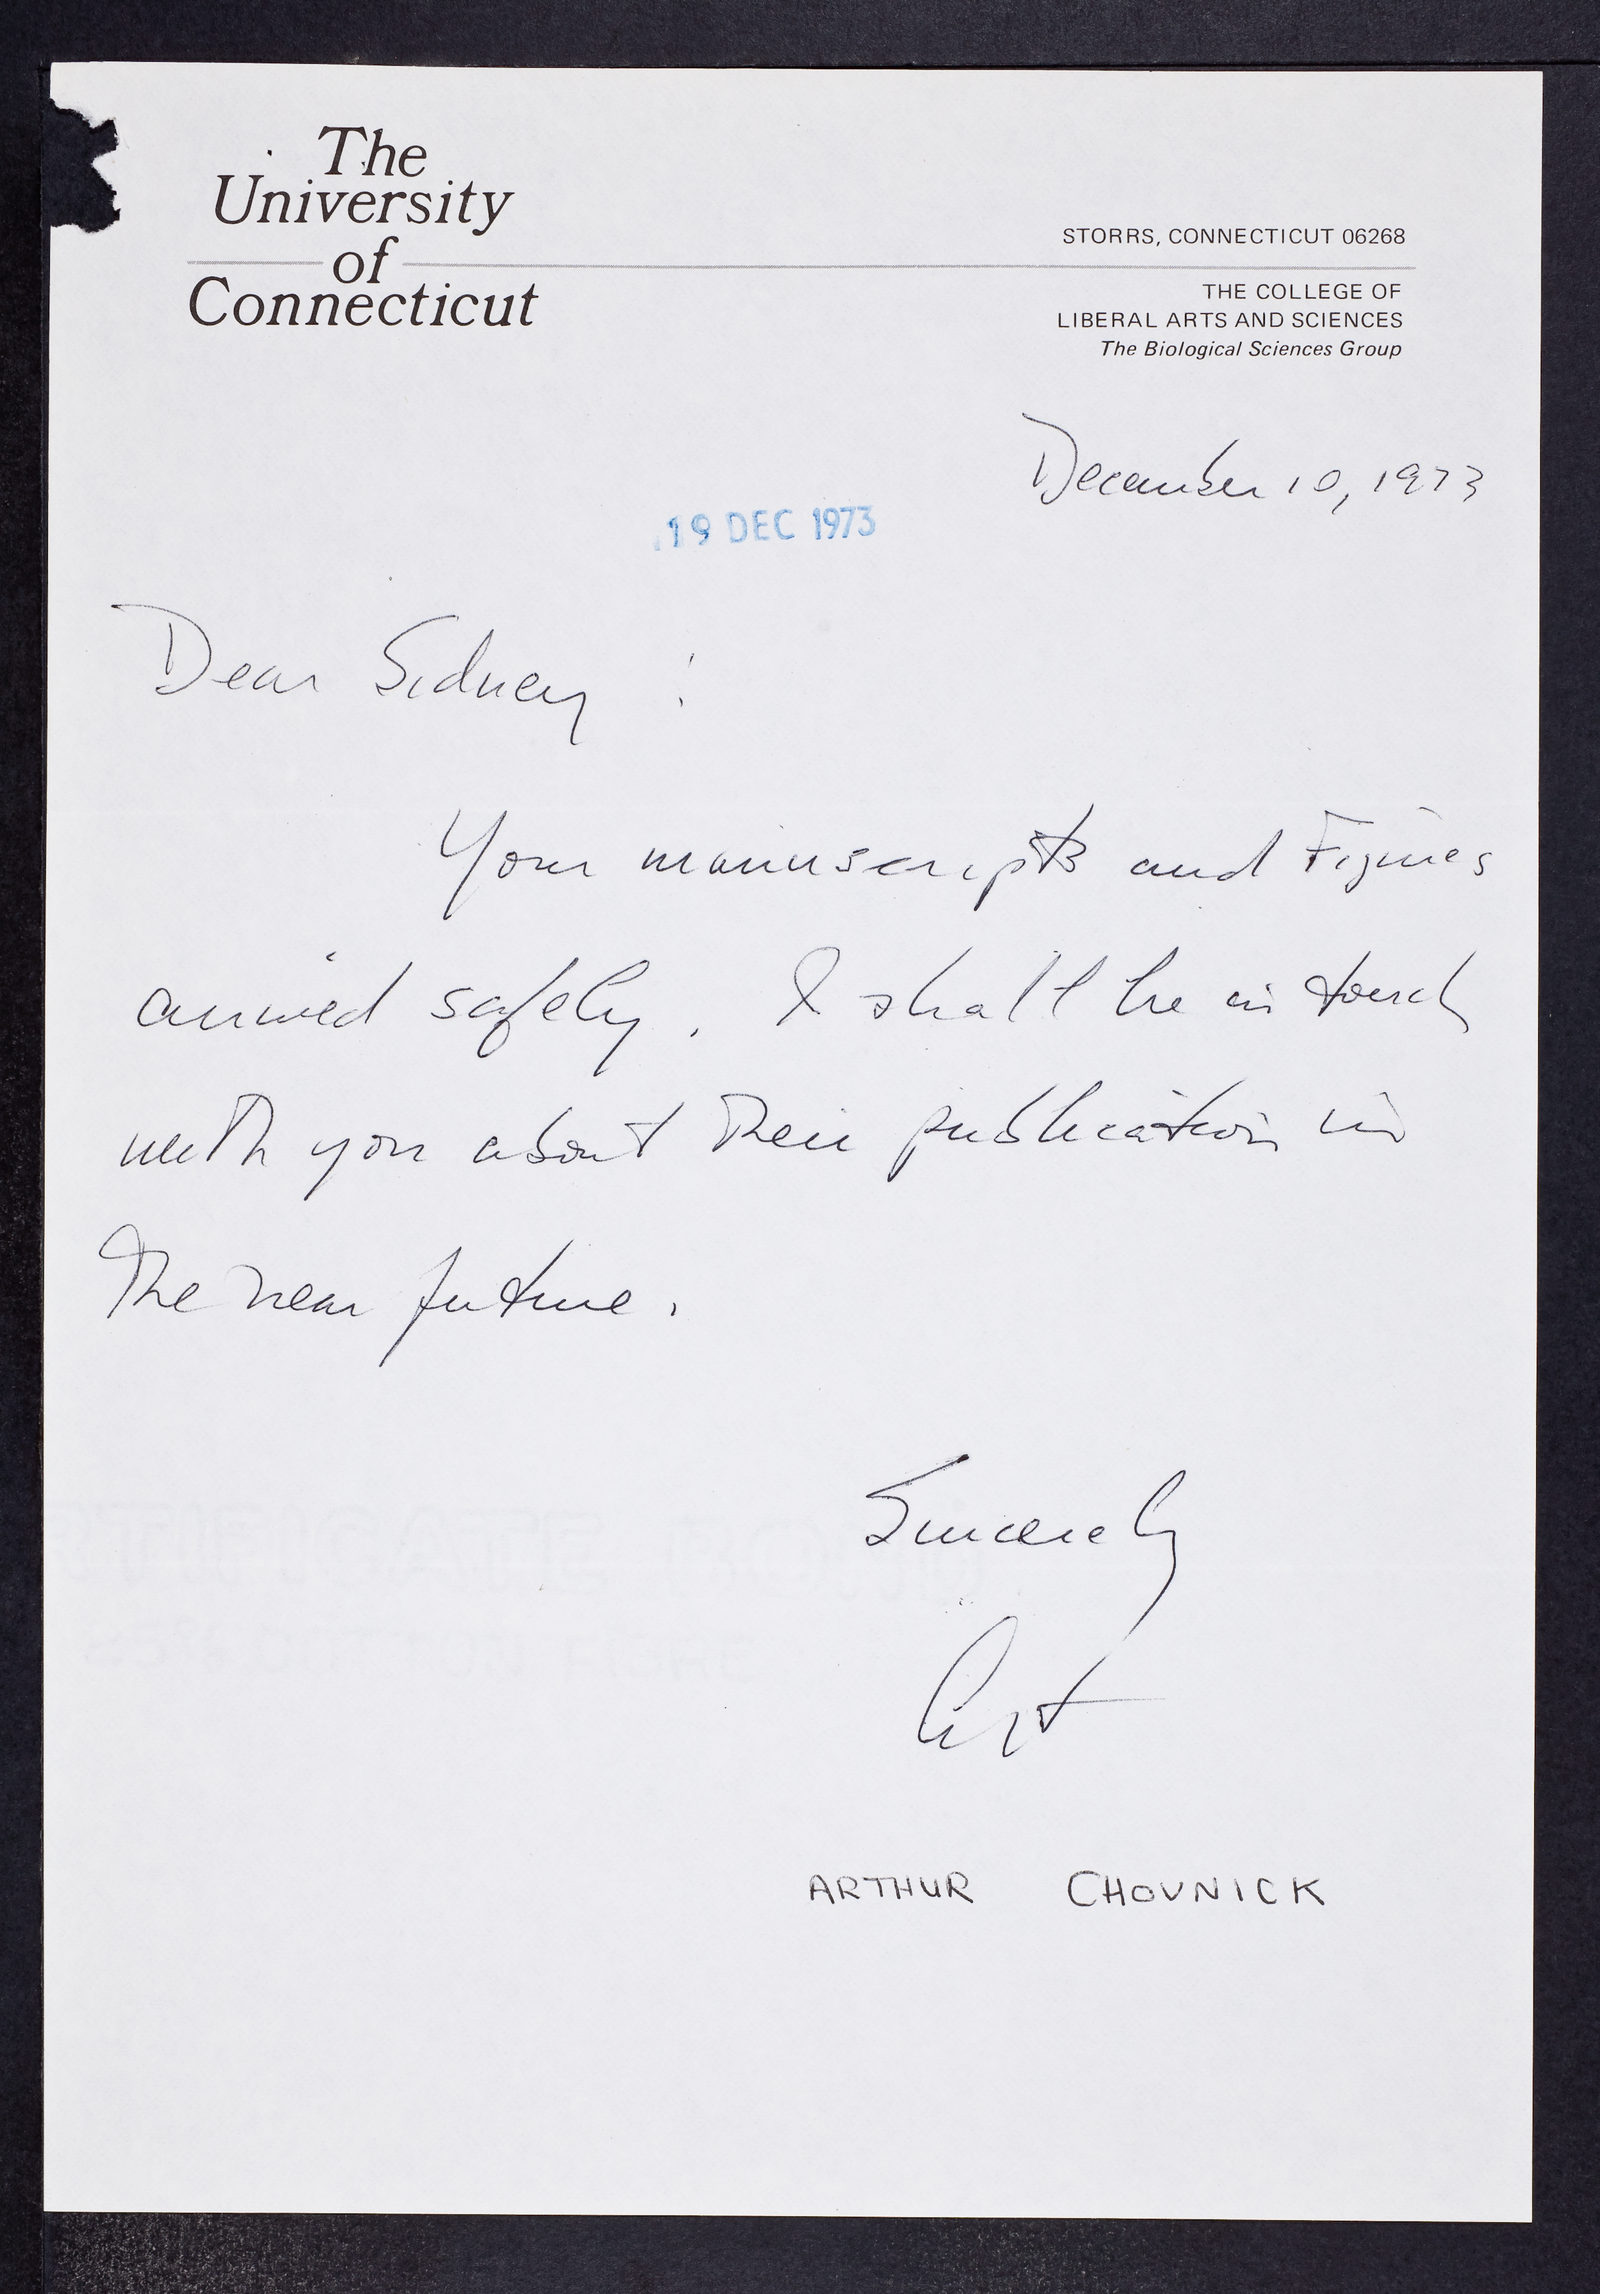 The
University
of
Connecticut
STORRS, CONNECTICUT 06268
THE COLLEGE OF
LIBERAL ARTS AND SCIENCES
The Biological Sciences Group
December 10, 1973
19 DEC 1973
Dear Sidney:
Your manuscripts and Figures
arrived safely. I shall be in touch
with you about their publication in
the near future.
Sincerely
Art
ARTHUR CHOVNICK